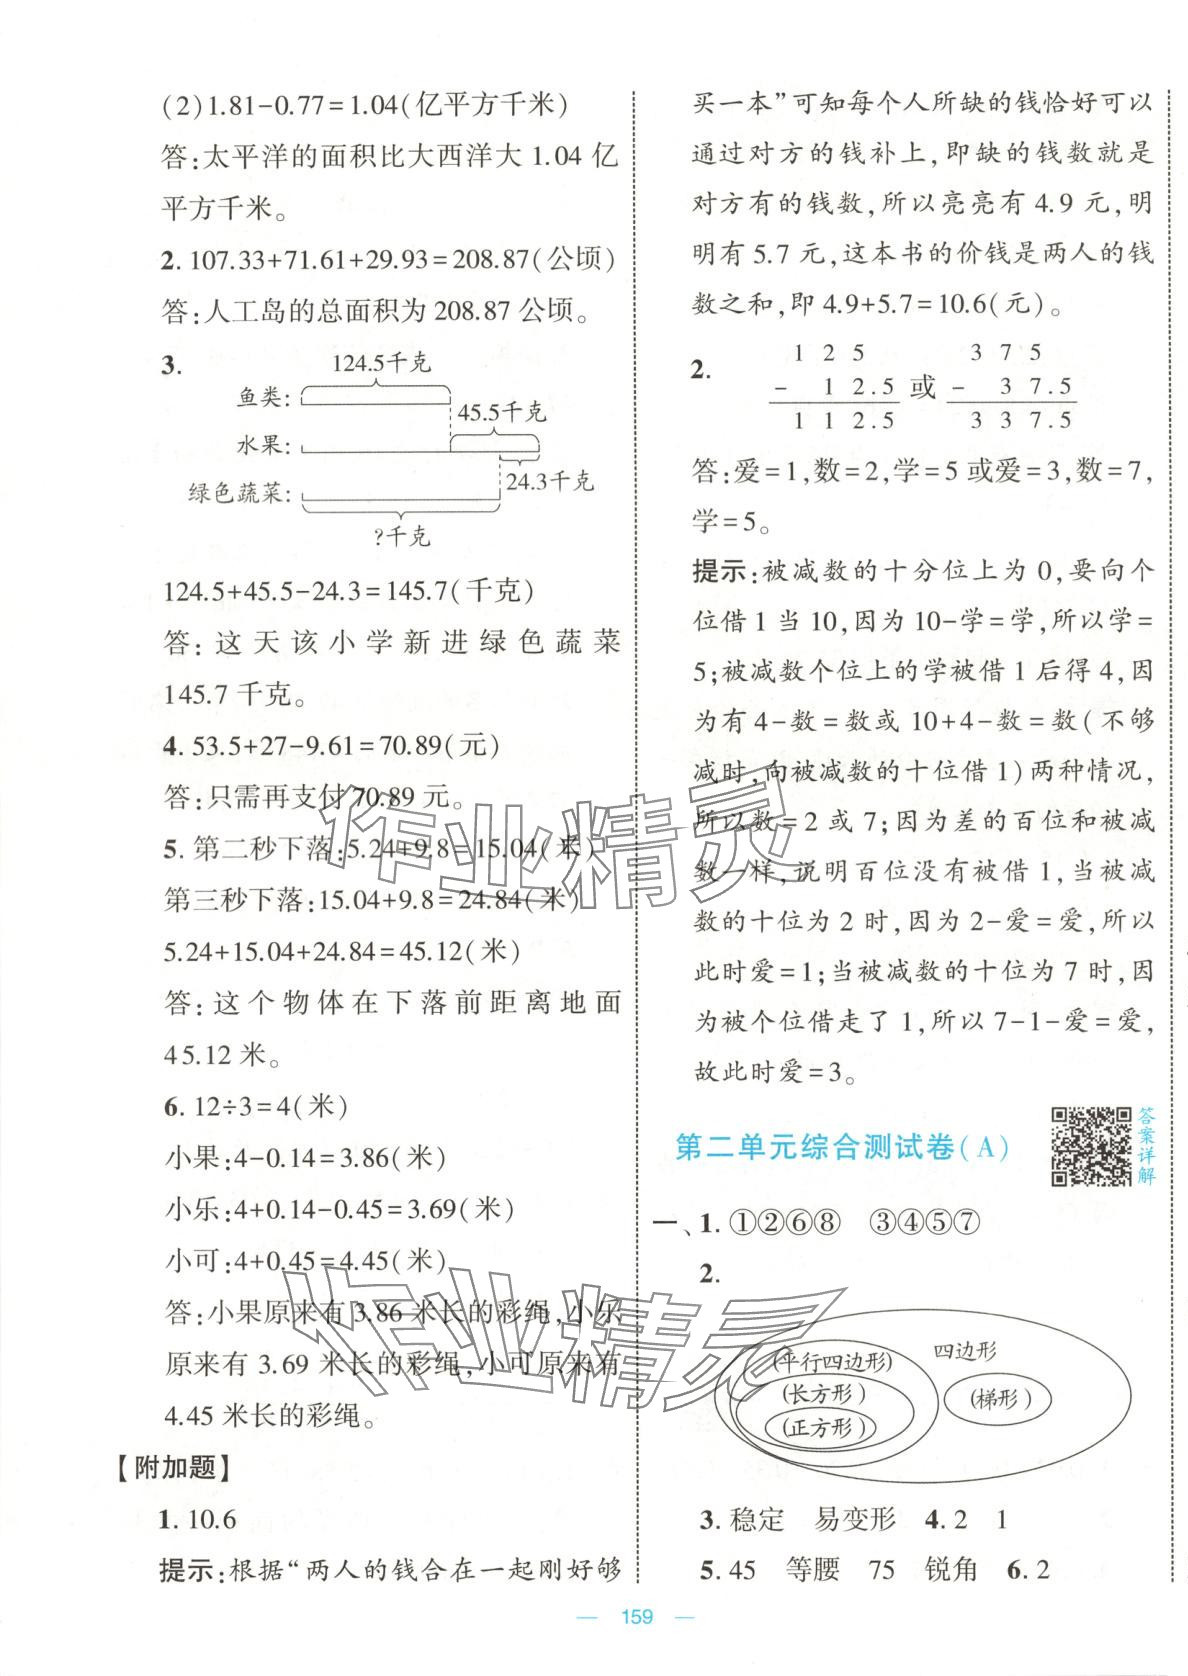 (2)1.81-0.77=1.04(亿平方千米)
答:太平洋的面积比大西洋大1.04亿
平方千米。
2. 107.33+71.61+29.93=208.87(公顷)
答:人工岛的总面积为208.87公顷。
3.
124.5千克
鱼类:
45.5千克
水果:
24.3千克
绿色蔬菜:
?千克
124.5+45.5-24.3=145.7(千克)
答:这天该小学新进绿色蔬菜
145.7千克。
4. 53.5+27-9.61=70.89(元)
答:只需再支付70.89元。
5. 第二秒下落:5.24+9.8=15.04(米)
第三秒下落:15.04+9.8=24.84(米)
5.24+15.04+24.84=45.12(米)
答:这个物体在下落前距离地面
45.12米。
6. 12÷3=4(米)
小果:4-0.14=3.86(米)
小乐:4+0.14-0.45=3.69(米)
小可:4+0.45=4.45(米)
答:小果原来有3.86米长的彩绳,小乐
原来有3.69米长的彩绳,小可原来有
4.45米长的彩绳。
【附加题】
1. 10.6
提示:根据“两人的钱合在一起刚好够
买一本”可知每个人所缺的钱恰好可以
通过对方的钱补上,即缺的钱数就是
对方有的钱数,所以亮亮有4.9元,明
明有5.7元,这本书的价钱是两人的钱
数之和,即4.9+5.7=10.6(元)。
2.
1 2 5　3 7 5
- 1 2.5 或 - 3 7.5
1 1 2.5　3 3 7.5
答:爱=1,数=2,学=5或爱=3,数=7,
学=5。
提示:被减数的十分位上为0,要向个
位借1当10,因为10-学=学,所以学=
5;被减数个位上的学被借1后得4,因
为有4-数=数或10+4-数=数(不够
减时,向被减数的十位借1)两种情况,
所以数=2或7;因为差的百位和被减
数一样,说明百位没有被借1,当被减
数的十位为2时,因为2-爱=爱,所以
此时爱=1;当被减数的十位为7时,因
为被个位借走了1,所以7-1-爱=爱,
故此时爱=3。
第二单元综合测试卷(A)
答案详解
一、1. ①②⑥⑧　③④⑤⑦
2.
四边形
(平行四边形)
(长方形)
(梯形)
(正方形)
3. 稳定　易变形　4. 2　1
5. 45　等腰　75　锐角　6. 2
— 159 —
作业精灵
作业精灵